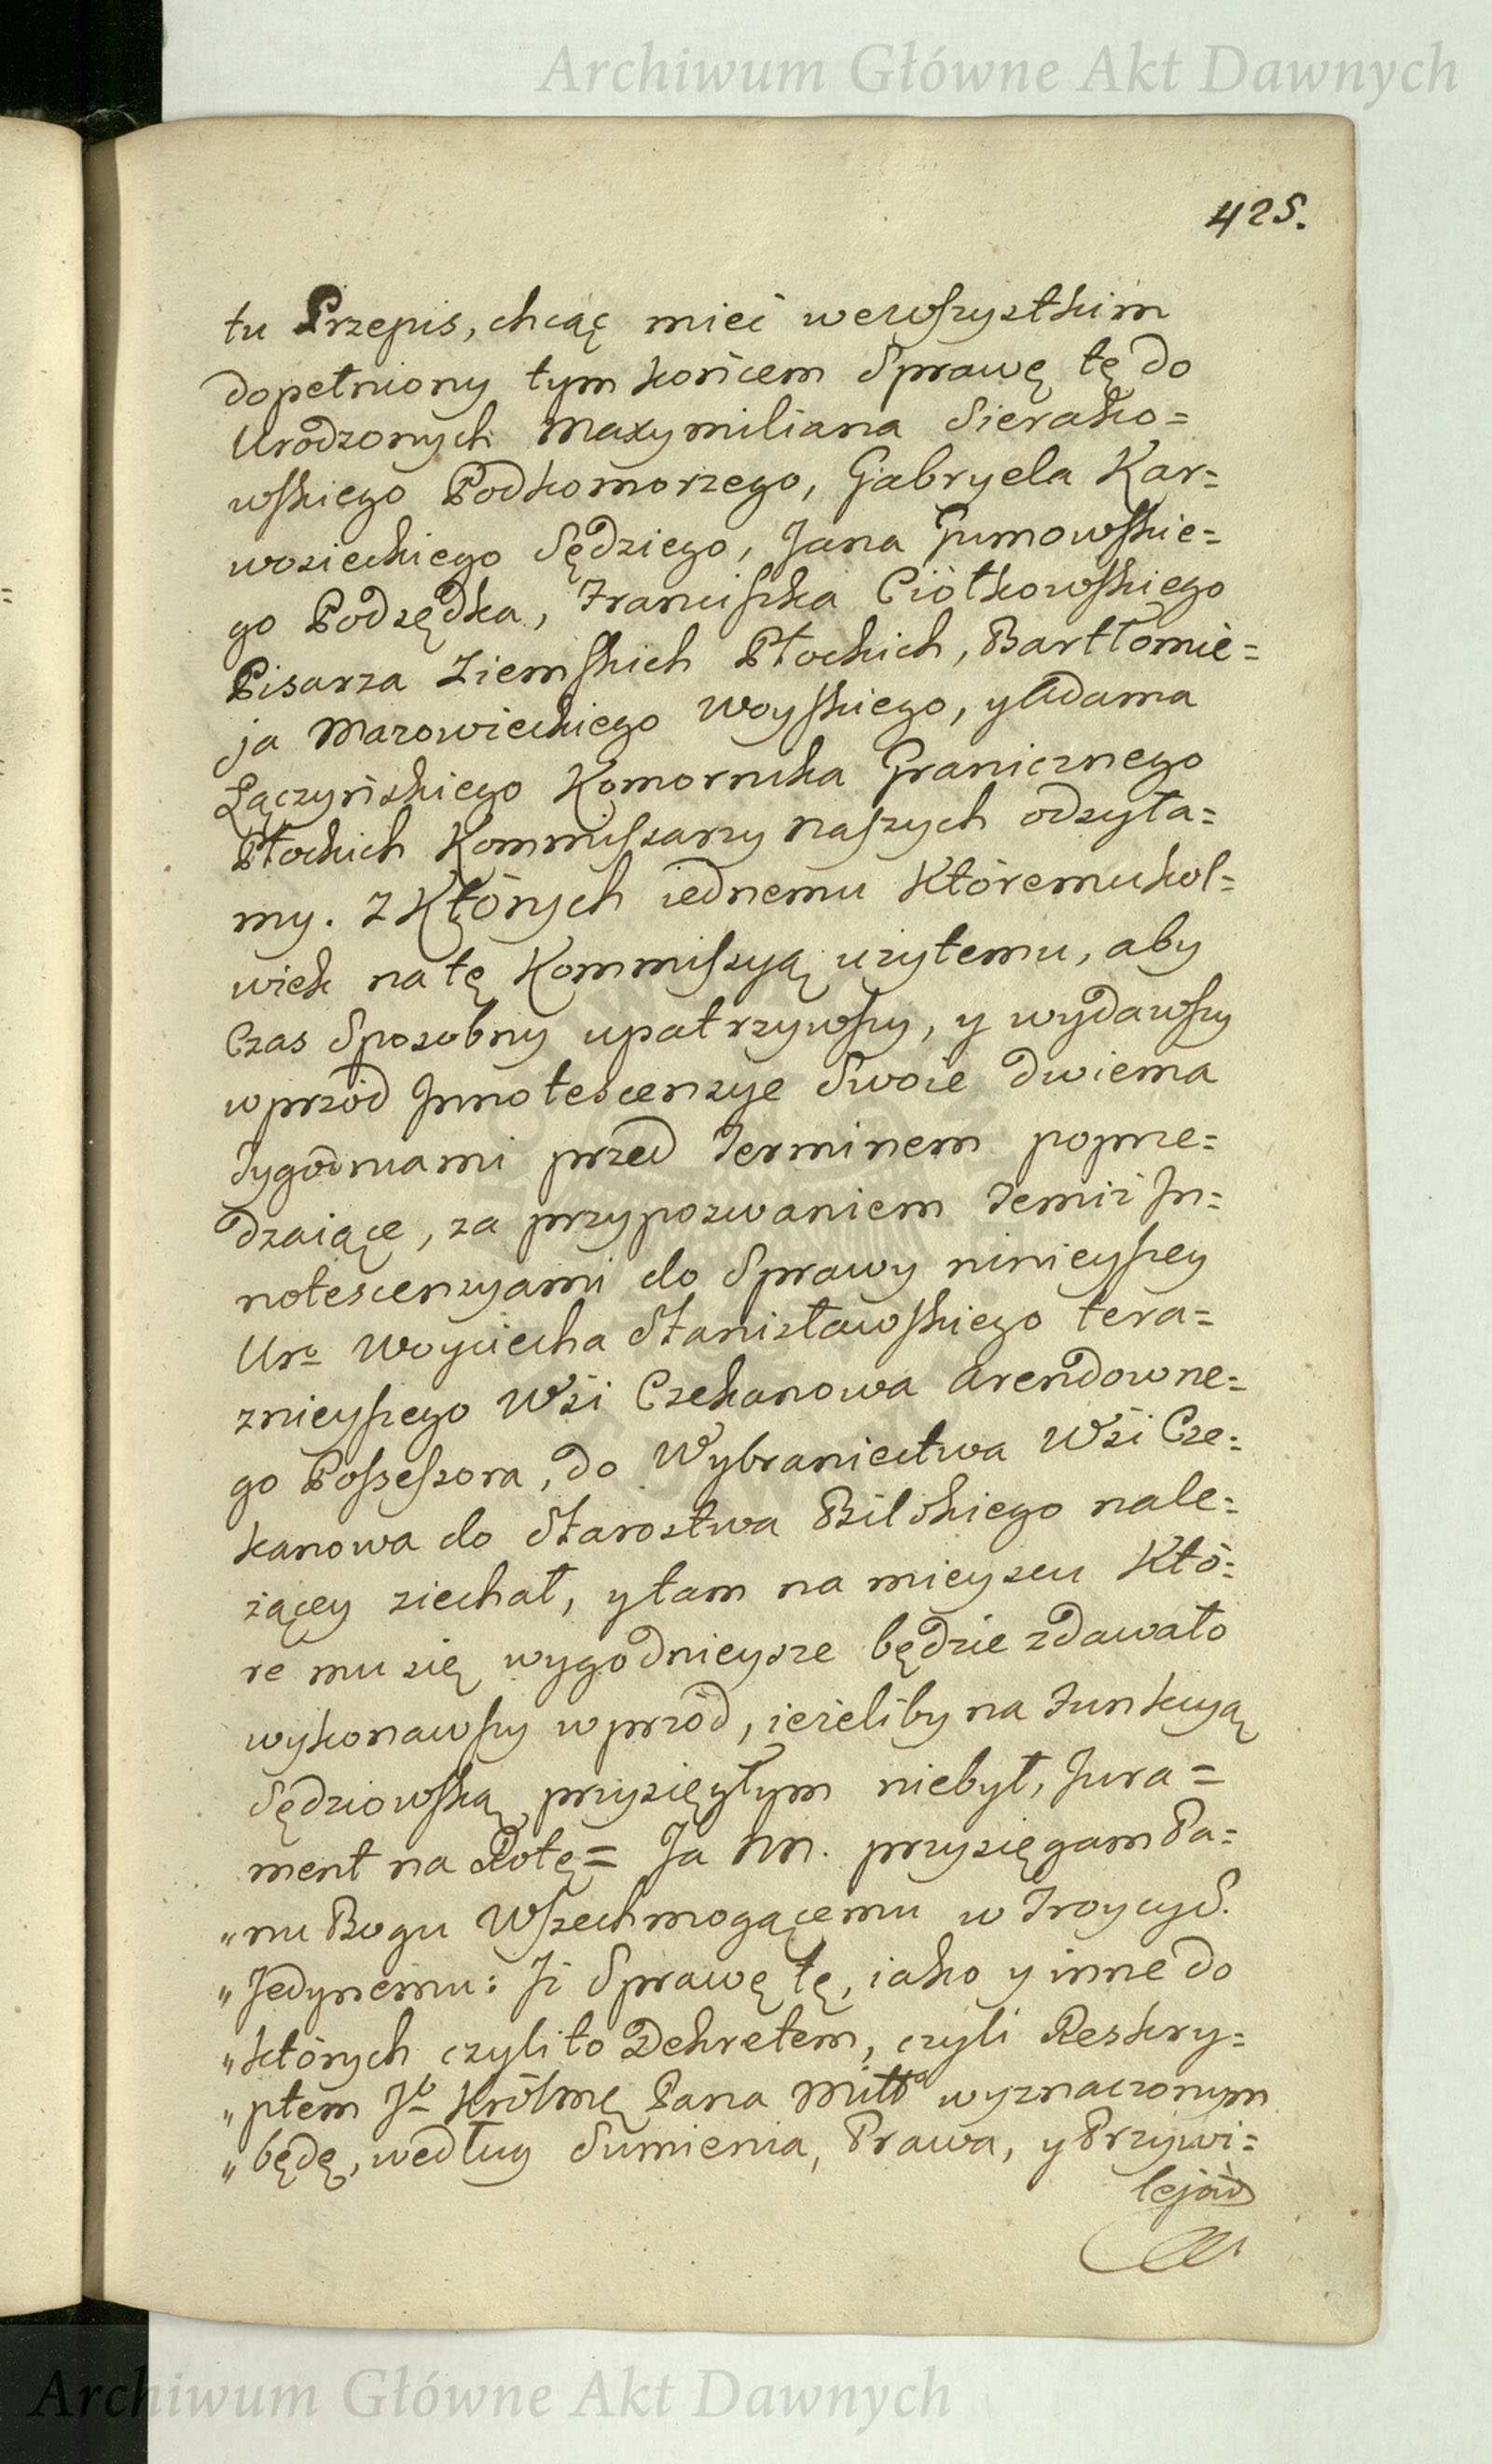 Archiwum Główne Akt Dawnych
425.
tu Przepis, chcąc mieć wewszystkim
dopełniony tym końcem Sprawę tę do
Urodzonych Maxymiliana Sierako=
wskiego Podkomorzego, Gabryela Kar=
wosieckiego Sędziego, Jana Gumowskie=
go Podsędka, Franciszka Ciołkowskiego
Pisarza Ziemskich Płockich, Bartłomie=
ja Mazowieckiego Woyskiego, y Adama
Łączyńskiego Komornika Granicznego
Płockich Kommissarzy naszych odsyła=
my. Z Których iednemu Któremukol=
wiek na tę Kommissyą użytemu, aby
Czas Sposobny upatrzywszy, y wydawszy
wprzód Innotescensye Swoie dwiema
Tygodniami przed Terminem poprze=
dzaiące, za przypozwaniem Temiż In=
notescensyami do Sprawy ninieyszey
Uro Woyciecha Stanisławskiego tera=
znieyszego Wśi Czekanowa arendowne=
go Possessora, do Wybraniectwa Wśi Cze=
kanowa do Starostwa Bilskiego nale=
żącey ziechał, y tam na mieyscu Któ=
re mu się wygodnieysze będzie zdawało
wykonawszy wprzód, ieżeliby na Funkcyą
Sędziowską przysięgłym niebył, Jura=
ment na Rotę= Ja NN. przysięgam Pa=
"nu Bogu Wszechmogącemu w Troycy S.
"Jedynemu: Iż Sprawę tę, iako y inne do
"których czyli to Dekretem, czyli Reskry=
"ptem Jo Królmę Pana Miłło wyznaczonym
"będę, według Sumienia, Prawa, y Przywi=
lejów
Archiwum Główne Akt Dawnych